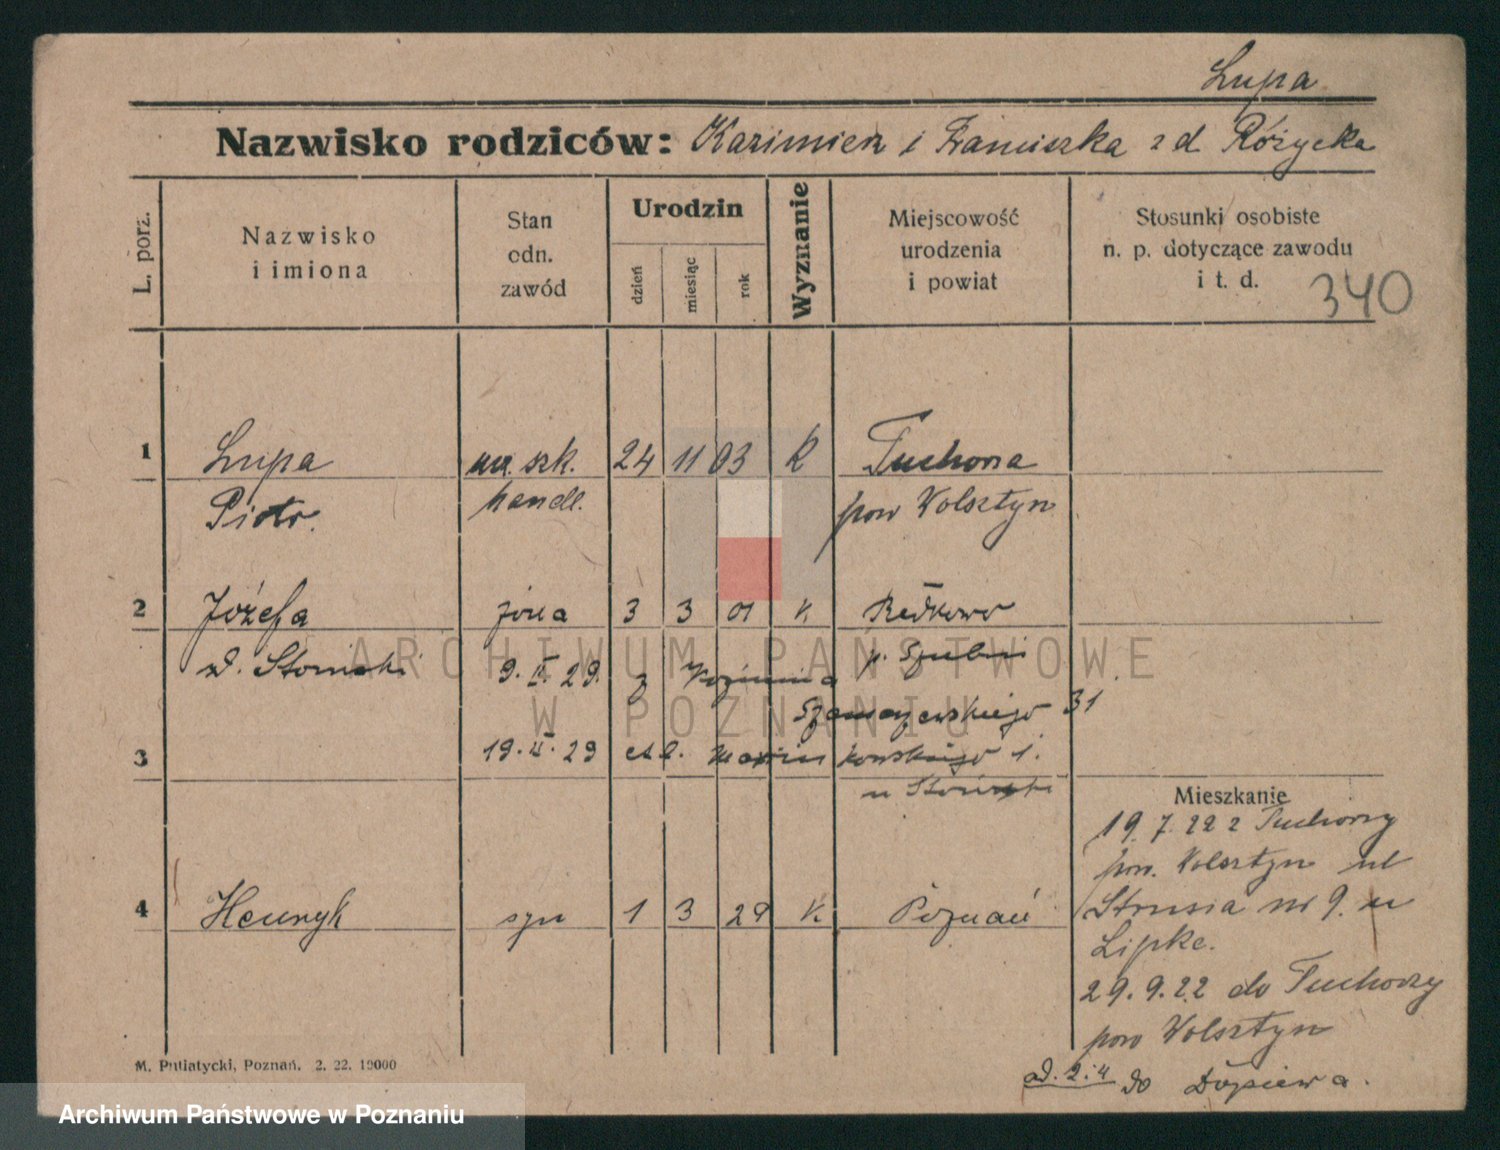 Lupa
Nazwisko rodziców: Kazimierz i Franciszka z d Różycka
L. porz.
Nazwisko
i imiona
Stan
odn.
zawód
Urodzin
dzień
miesiąc
rok
Wyznanie
Miejscowość
urodzenia
i powiat
Stosunki osobiste
n. p. dotyczące zawodu
i t. d.
340
1 Lupa szk. 24 11 03 K Tuchorza
Piotr handl. pow Wolsztyn
2 Józefa żona 3 3 01 K Redkowo
d. 9. 29. z p. Szubin
Szamarzewskiego 31
3 19. 29 1.
u
Mieszkanie
19. 7. 22 z Tuchorzy
pow. Wolsztyn ul
4 Henryk syn 1 3 29 K. Poznań
Strusia nr 9. u
Lipke.
29. 9. 22 do Tuchorzy
pow Wolsztyn
ad. 2. 4 do Dopiewa.
M. Putiatycki, Poznań. 2. 22. 10000
ARCHIWUM PAŃSTWOWE
W POZNANIU
Archiwum Państwowe w Poznaniu